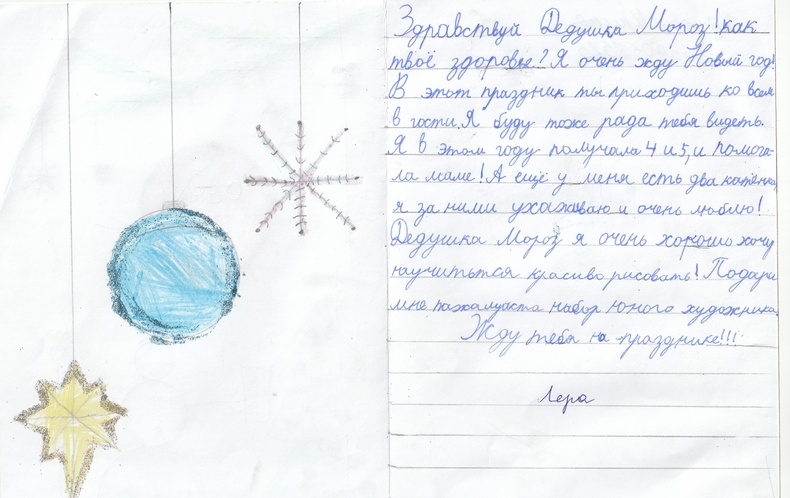 Здравствуй Дедушка Мороз! как
твоё здоровье? Я очень жду Новый год!
В этот праздник ты приходишь ко всем
в гости. Я буду тоже рада тебя видеть.
Я в этом году получала 4 и 5, и помога-
ла маме! А ещё у меня есть два котёнка,
я за ними ухаживаю и очень люблю!
Дедушка Мороз я очень хорошо хочу
научиться красиво рисовать! Подари
мне пожалуйста набор юного художника.
Жду тебя на празднике!!!
Лера